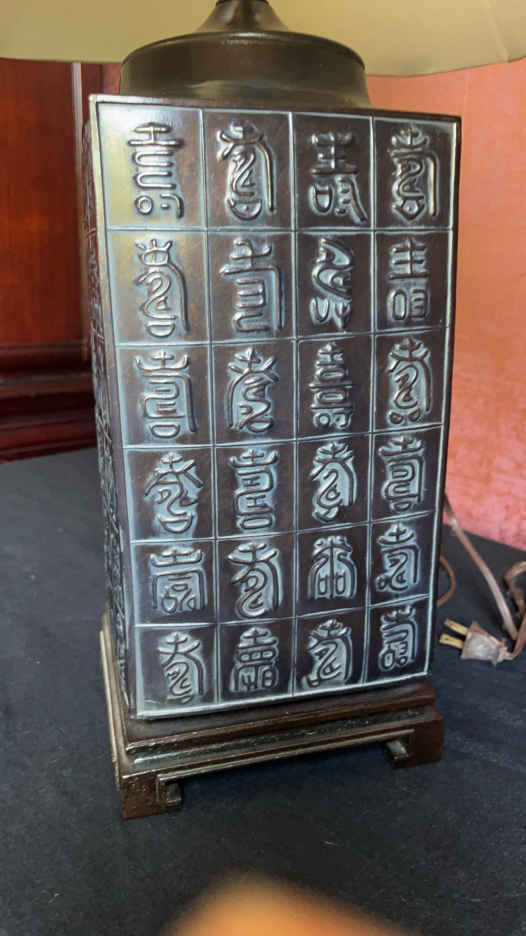 壽壽壽壽
壽壽壽壽
壽壽壽壽
壽壽壽壽
壽壽壽壽
壽壽壽壽